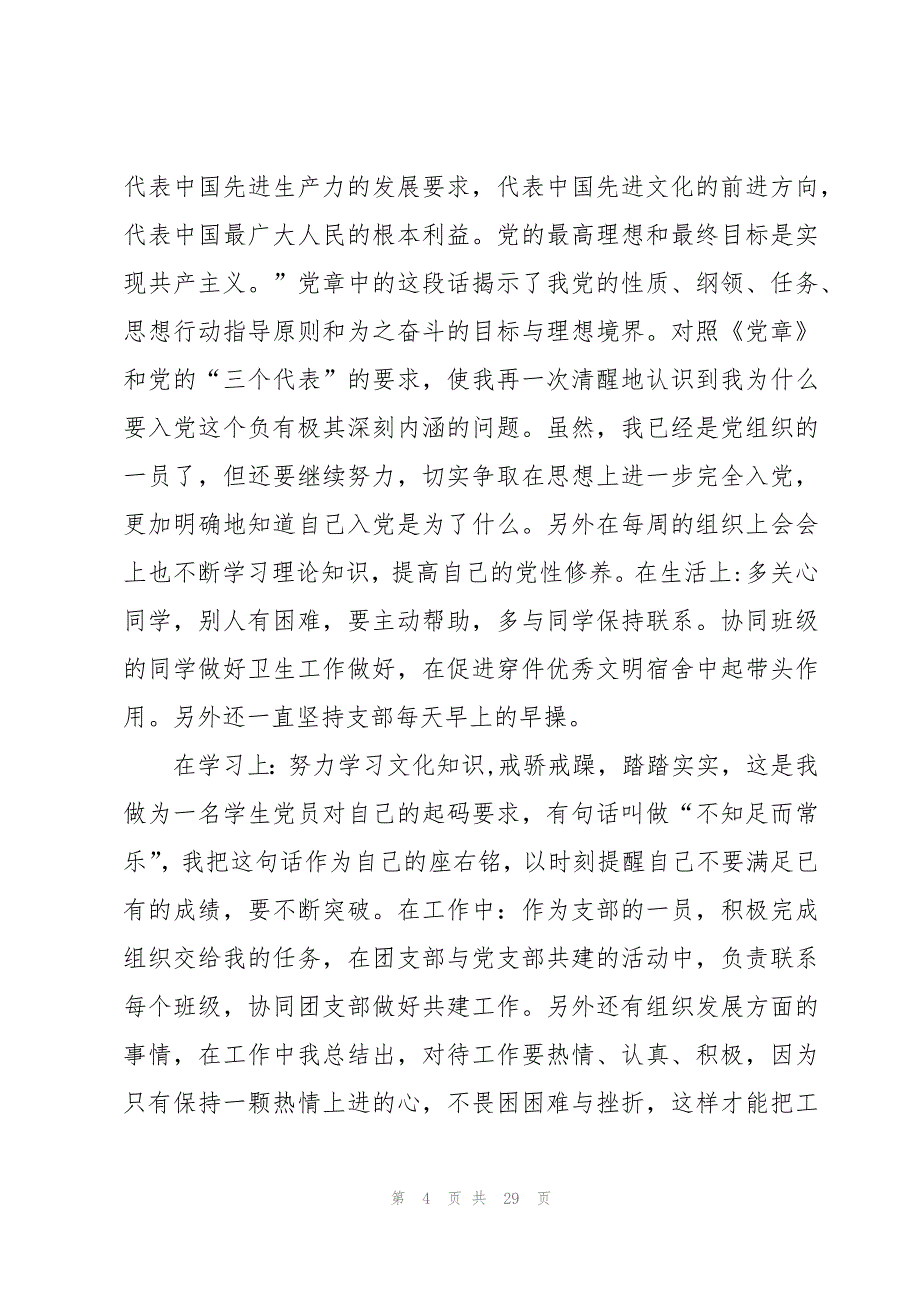 代表中国先进生产力的发展要求，代表中国先进文化的前进方向，
代表中国最广大人民的根本利益。党的最高理想和最终目标是实
现共产主义。”党章中的这段话揭示了我党的性质、纲领、任务、
思想行动指导原则和为之奋斗的目标与理想境界。对照《党章》
和党的“三个代表”的要求，使我再一次清醒地认识到我为什么
要入党这个负有极其深刻内涵的问题。虽然，我已经是党组织的
一员了，但还要继续努力，切实争取在思想上进一步完全入党，
更加明确地知道自己入党是为了什么。另外在每周的组织上会会
上也不断学习理论知识，提高自己的党性修养。在生活上：多关心
同学，别人有困难，要主动帮助，多与同学保持联系。协同班级
的同学做好卫生工作做好，在促进穿件优秀文明宿舍中起带头作
用。另外还一直坚持支部每天早上的早操。
在学习上：努力学习文化知识,戒骄戒躁，踏踏实实，这是我
做为一名学生党员对自己的起码要求，有句话叫做“不知足而常
乐”，我把这句话作为自己的座右铭，以时刻提醒自己不要满足已
有的成绩，要不断突破。在工作中：作为支部的一员，积极完成
组织交给我的任务，在团支部与党支部共建的活动中，负责联系
每个班级，协同团支部做好共建工作。另外还有组织发展方面的
事情，在工作中我总结出，对待工作要热情、认真、积极，因为
只有保持一颗热情上进的心，不畏困困难与挫折，这样才能把工
第 4 页 共 29 页